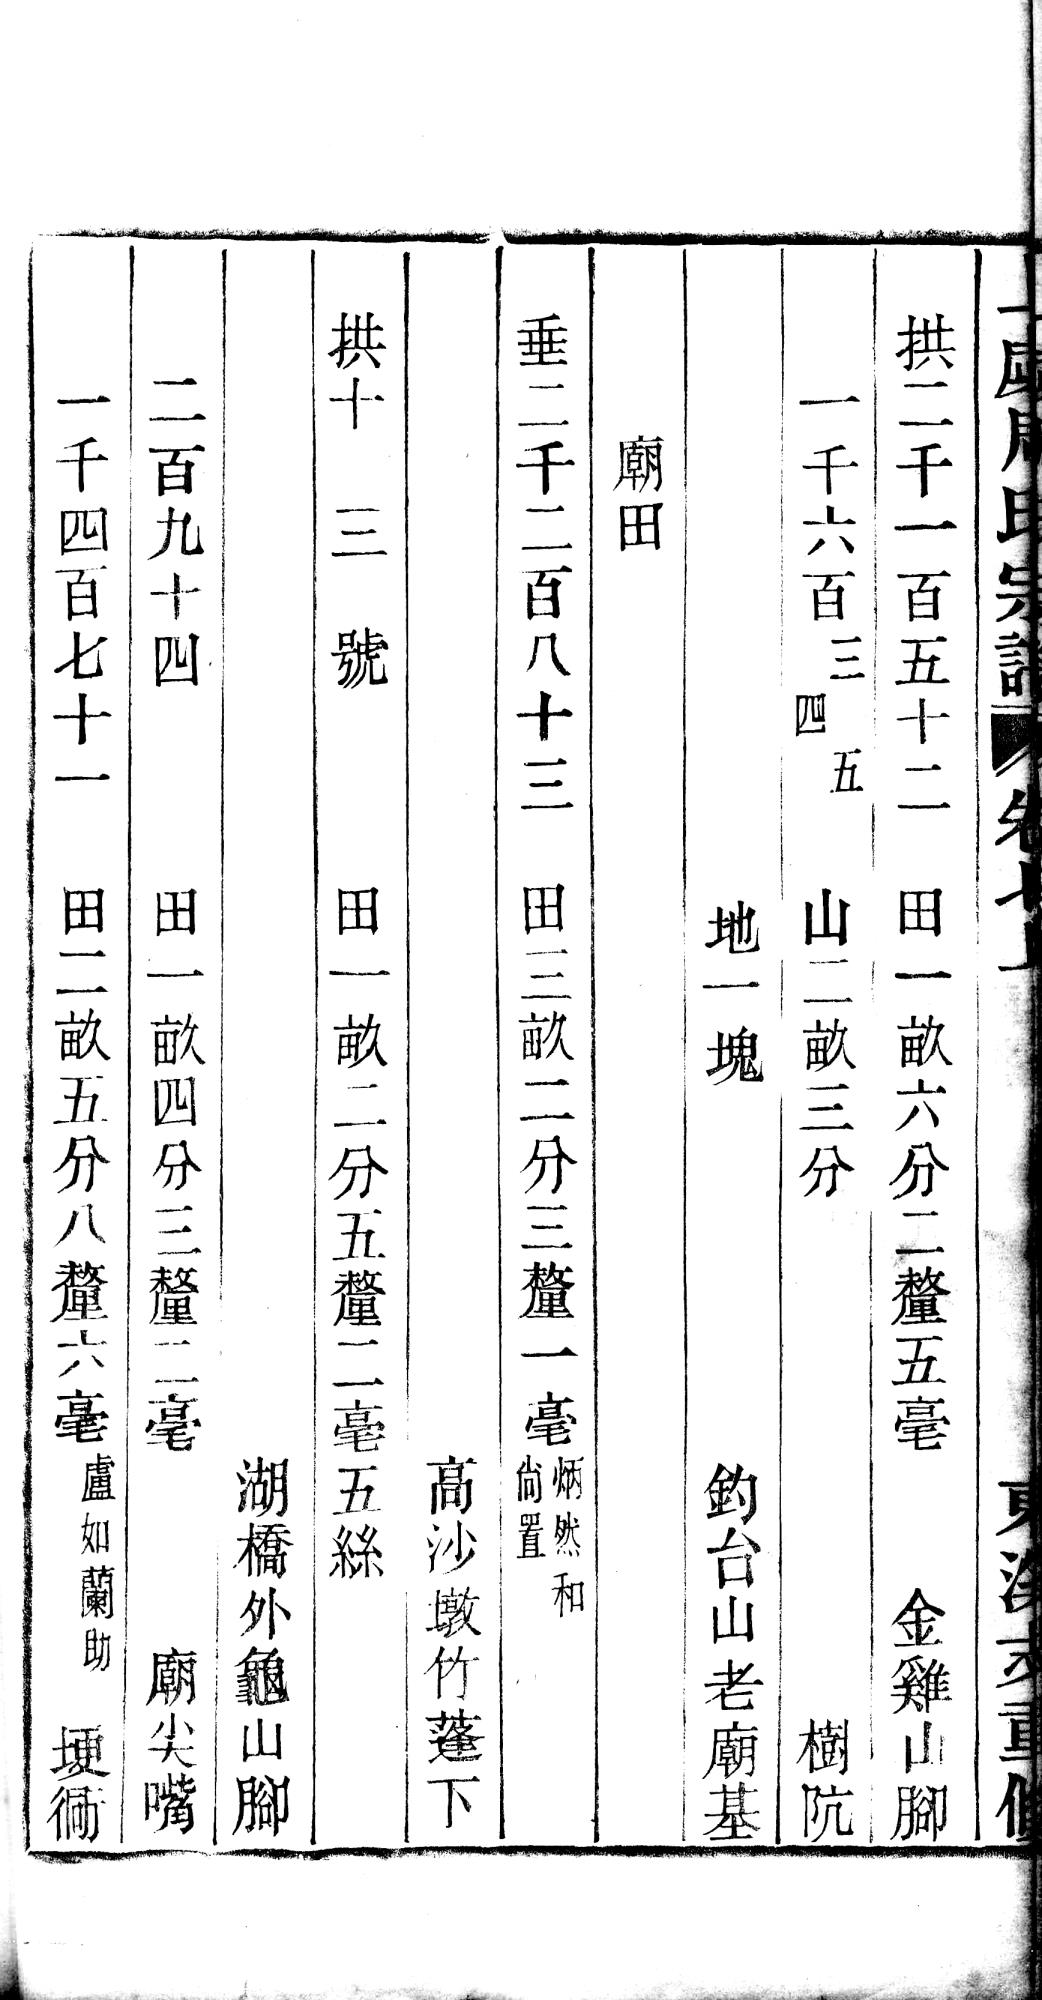 周氏宗譜 卷七 重修
拱二千一百五十二 田一畝六分二釐五毫 金雞山腳
一千六百三四五 山二畝三分 樹阬
地一塊 釣台山老廟基
廟田
垂二千二百八十三 田三畝二分三釐一毫 炳然和尙置
高沙墩竹蓬下
拱十三號 田一畝二分五釐二毫五絲
湖橋外龜山腳
二百九十四 田一畝四分三釐二毫 廟尖嘴
一千四百七十一 田二畝五分八釐六毫 盧如蘭助 埂衕